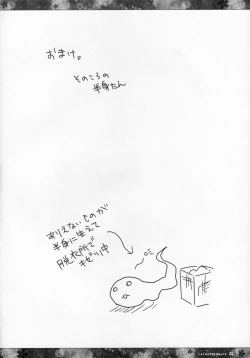 おまけ。
そのころの
半身たん
ありえないものが
半身に生えて
脱衣所で
キゼツ中